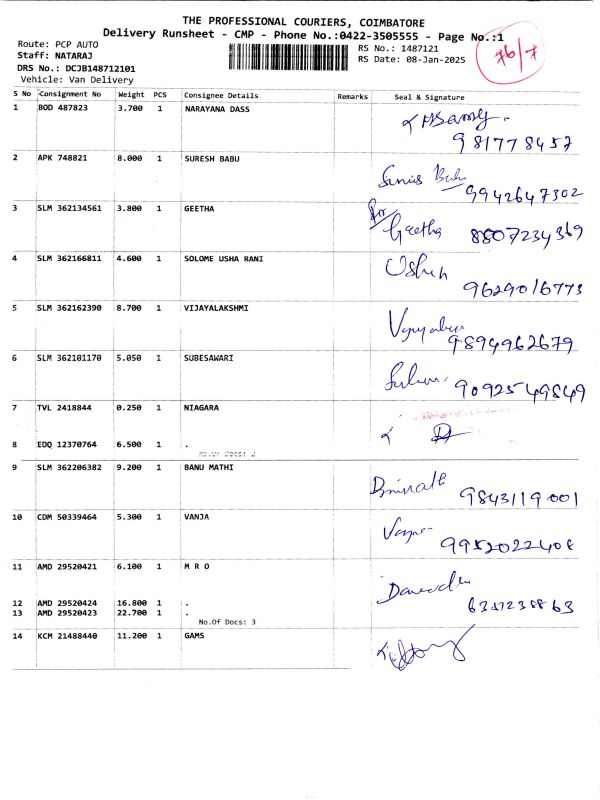 THE PROFESSIONAL COURIERS, COIMBATORE
Delivery Runsheet - CMP - Phone No.:0422-3505555 - Page No.:1
76/7
Route: PCP AUTO
Staff: NATARAJ
DRS No.: DCJB148712101
Vehicle: Van Delivery
RS No.: 1487121
RS Date: 08-Jan-2025
S No Consignment No Weight PCS Consignee Details Remarks Seal & Signature
1 BOD 487823 3.700 1 NARAYANA DASS
981778457
2 APK 748821 8.000 1 SURESH BABU
9942647302
3 SLM 362134561 3.800 1 GEETHA
for Geetha 8807234369
4 SLM 362166811 4.600 1 SOLOME USHA RANI
9629016773
5 SLM 362162390 8.700 1 VIJAYALAKSHMI
9894962679
6 SLM 362101170 5.050 1 SUBESAWARI
9092549849
7 TVL 2418844 0.250 1 NIAGARA
8 EDQ 12370764 6.500 1 .
No.Of Docs: 2
9 SLM 362206382 9.200 1 BANU MATHI
9843119001
10 CDM 50339464 5.300 1 VANJA
9952022408
11 AMD 29520421 6.100 1 M R O
12 AMD 29520424 16.800 1 .
13 AMD 29520423 22.700 1 .
No.Of Docs: 3
14 KCM 21488440 11.200 1 GAMS